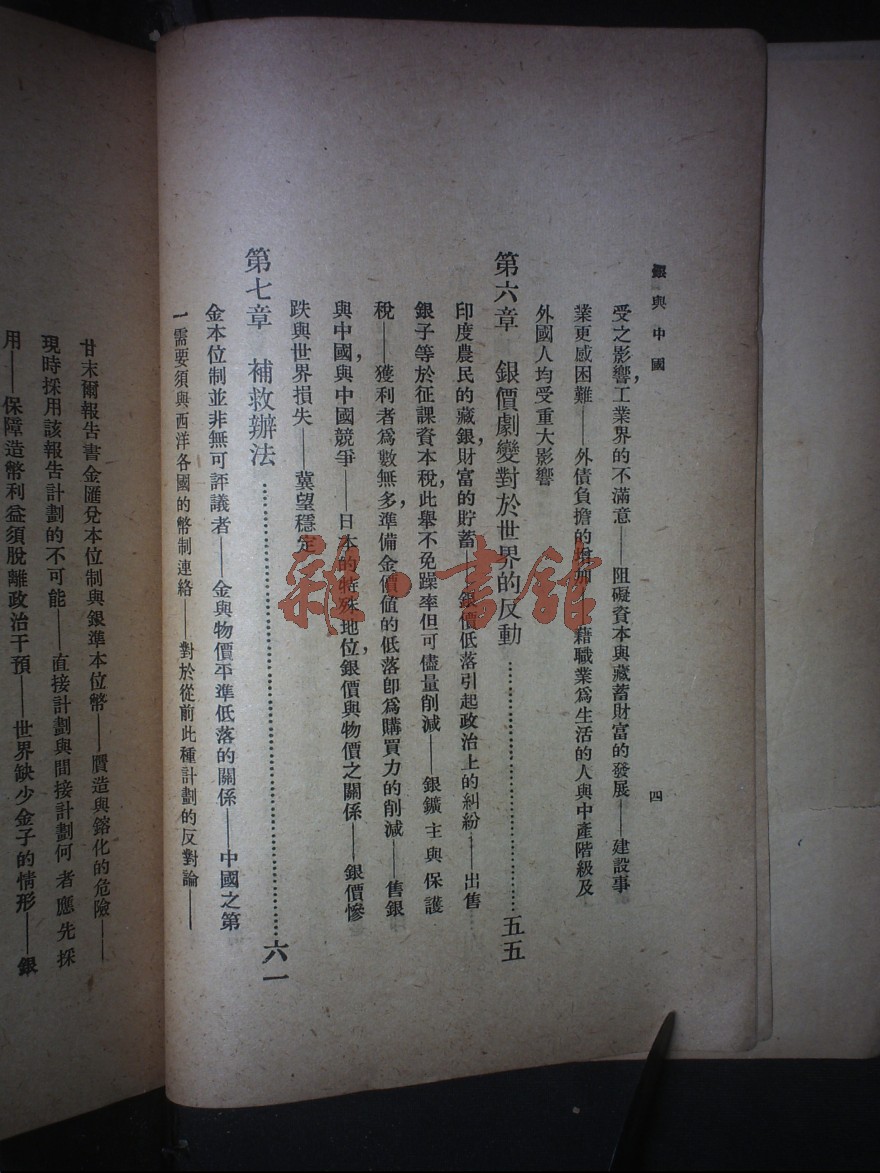 銀與中國
四
受之影響，工業界的不滿意——阻礙資本與藏蓄財富的發展——建設事
業更感困難——外債負擔的增加——藉職業為生活的人與中產階級及
外國人均受重大影響
第六章　銀價劇變對於世界的反動…………五五
印度農民的藏銀，財富的貯蓄——銀價低落引起政治上的糾紛——出售
銀子等於征課資本稅，此舉不免躁率但可儘量削減——銀鑛主與保護
稅——獲利者為數無多，準備金價値的低落卽為購買力的削減——售銀
與中國，與中國競爭——日本的特殊地位，銀價與物價之關係——銀價慘
跌與世界損失——冀望穩定
第七章　補救辦法…………六一
金本位制並非無可評議者——金與物價平準低落的關係——中國之第
一需要須與西洋各國的幣制連絡——對於從前此種計劃的反對論——
甘末爾報告書金匯兌本位制與銀準本位幣——贋造與鎔化的危險——
現時採用該報告計劃的不可能——直接計劃與間接計劃何者應先採
用——保障造幣利益須脫離政治干預——世界缺少金子的情形——銀
雜·書館